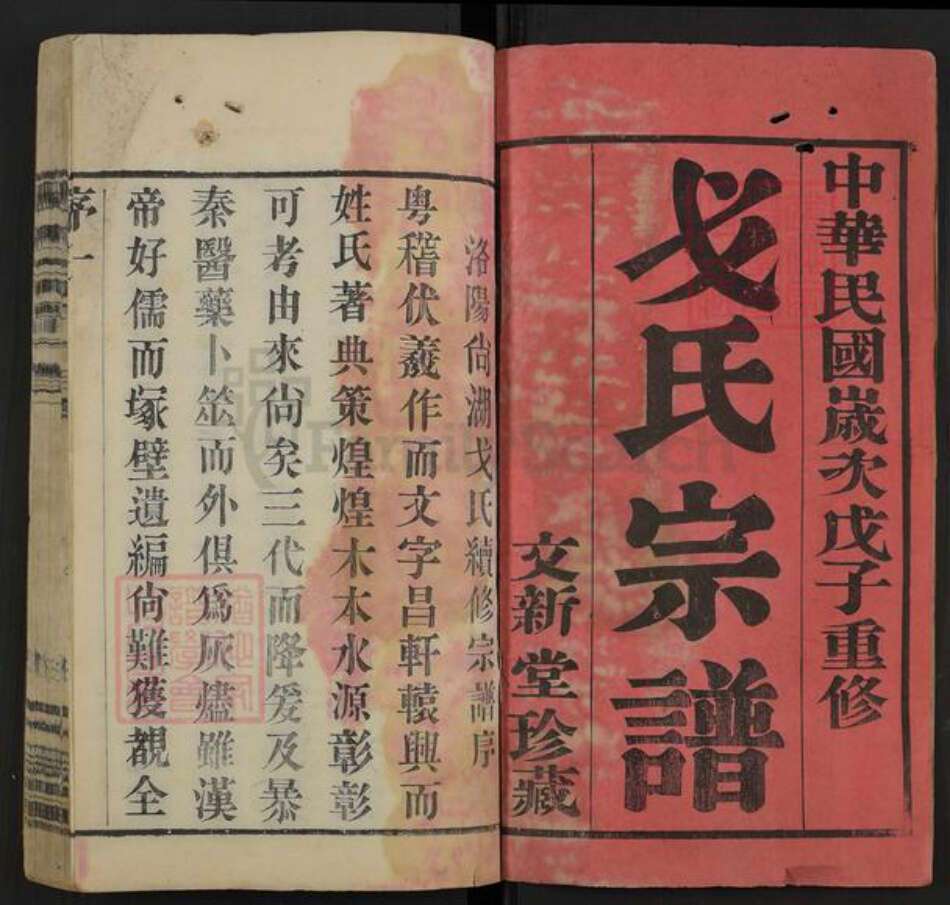 中華民國歲次戊子重修
戈氏宗譜
文新堂珍藏
洛陽尙湖戈氏續修宗譜序
粤稽伏羲作而文字昌軒轅興而
姓氏著典策煌煌木本水源彰彰
可考由來尙矣三代而降爰及暴
秦醫藥卜筮而外俱爲灰燼雖漢
帝好儒而塚壁遺編尙難獲覩全
序一
FamilySearch